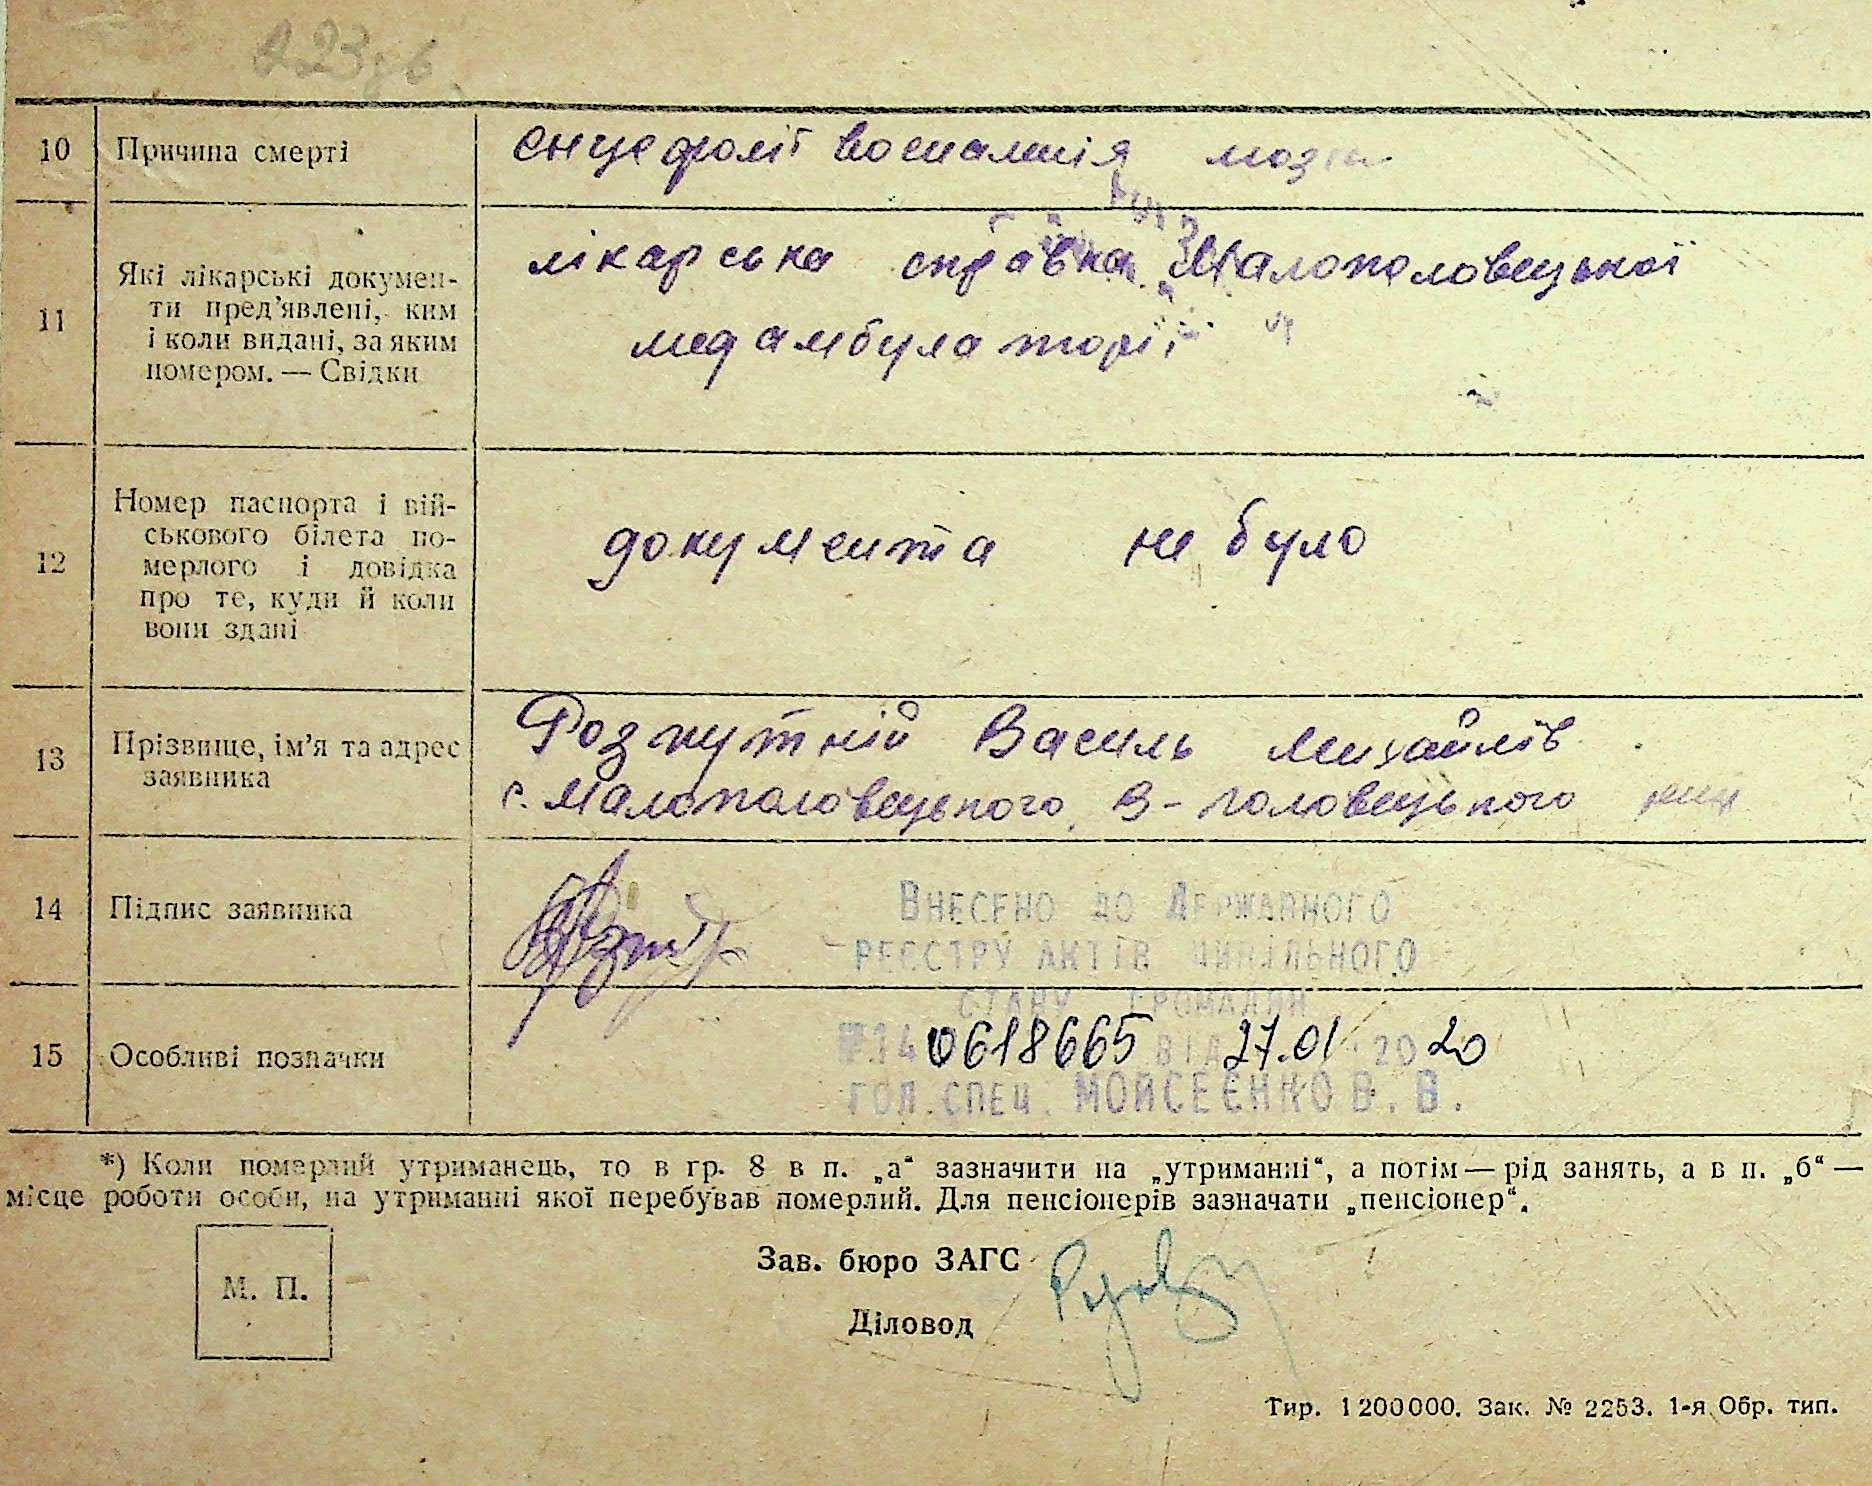 10 Причина смерті
енцефоліт воспаленія
11 Які лікарські докумен-
ти пред'явлені, ким
і коли видані, за яким
номером. — Свідки
лікарська справка Малополовецької
медамбулаторії
12 Номер паспорта і вій-
ськового білета по-
мерлого і довідка
про те, куди й коли
вони здані
документа не було
13 Прізвище, ім'я та адрес
заявника
Розпутній Василь Михайлів
с. Малополовецького, В-половецького
14 Підпис заявника
Внесено до Державного
реєстру актів цивільного
стану громадян
15 Особливі позначки
0618665 від 27.01.2020
гол. спец. Мойсеєнко В. В.
*) Коли померлий утриманець, то в гр. 8 в п. „а“ зазначити на „утриманні“, а потім — рід занять, а в п. „б“ —
місце роботи особи, на утриманні якої перебував померлий. Для пенсіонерів зазначати „пенсіонер“.
М. П.
Зав. бюро ЗАГС
Діловод
Тир. 1200000. Зак. № 2253. 1-я Обр. тип.